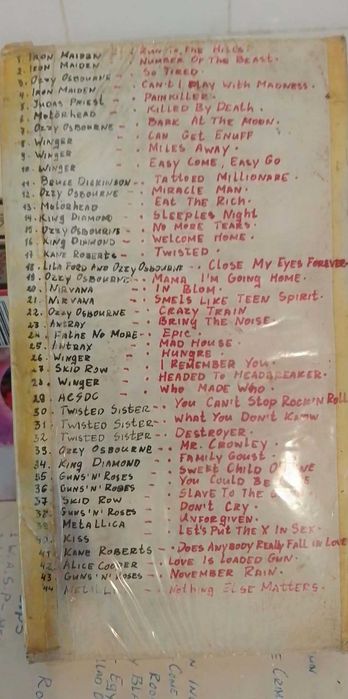 1. IRON MAIDEN - RUN TO THE HILLS.
2. IRON MAIDEN - NUMBER OF THE BEAST.
3. OZZY OSBOURNE - SO TIRED.
4. IRON MAIDEN - CAN I PLAY WITH MADNESS.
5. JUDAS PRIEST - PAINKILLER.
6. MOTÖRHEAD - KILLED BY DEATH.
7. OZZY OSBOURNE - BARK AT THE MOON.
8. WINGER - CAN GET ENUFF
9. WINGER - MILES AWAY.
10. WINGER - EASY COME, EASY GO
11. BRUCE DICKINSON - TATTOED MILLIONARE.
12. OZZY OSBOURNE - MIRACLE MAN.
13. MOTORHEAD - EAT THE RICH.
14. KING DIAMOND - SLEEPLES NIGHT
15. OZZY OSBOURNE - NO MORE TEARS.
16. KING DIAMOND - WELCOME HOME.
17. KANE ROBERTS - TWISTED.
18. LITA FORD AND OZZY OSBOURN - CLOSE MY EYES FOREVER
19. OZZY OSBOURNE - MAMA I'M GOING HOME.
20. NIRVANA - IN BLOM.
21. NIRVANA - SMELS LIKE TEEN SPIRIT.
22. OZZY OSBOURNE - CRAZY TRAIN
23. ANTRAX - BRING THE NOISE.
24. FAITHE NO MORE - EPIC.
25. ANTRAX - MAD HOUSE
26. WINGER - HUNGRE.
27. SKID ROW - I REMEMBER YOU.
28. WINGER - HEADED TO HEADBREAKER.
29. ACSDC - WHO MADE WHO.
30. TWISTED SISTER - YOU CAN'T STOP ROCK'N ROLL
31. TWISTED SISTER - WHAT YOU DON'T KNOW
32. TWISTED SISTER - DESTROYER.
33. OZZY OSBOURNE - MR. CROWLEY.
34. KING DIAMOND - FAMILY GOUST.
35. GUNS'N'ROSES - SWEET CHILD O' MINE
36. GUNS'N'ROSES - YOU COULD BE
37. SKID ROW - SLAVE TO THE
38. GUNS'N'ROSES - DON'T CRY.
39. METALLICA - UNFORGIVEN.
40. KISS - LET'S PUT THE X IN SEX.
41. KANE ROBERTS - DOES ANYBODY REALLY FALL IN LOVE
42. ALICE COOPER - LOVE IS LOADED GUN.
43. GUNS'N'ROSES - NOVEMBER RAIN.
44. - NOTHING ELSE MATTERS.